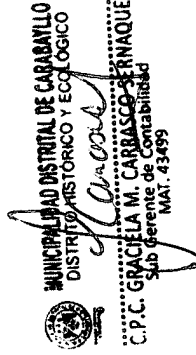 MUNICIPALIDAD DISTRITAL DE CARABAYLLO
DISTRITO HISTÓRICO Y ECOLÓGICO
C.P.C. GRACIELA M. CARRASCO BERNAQUE
Sub Gerente de Contabilidad
MAT. 43499